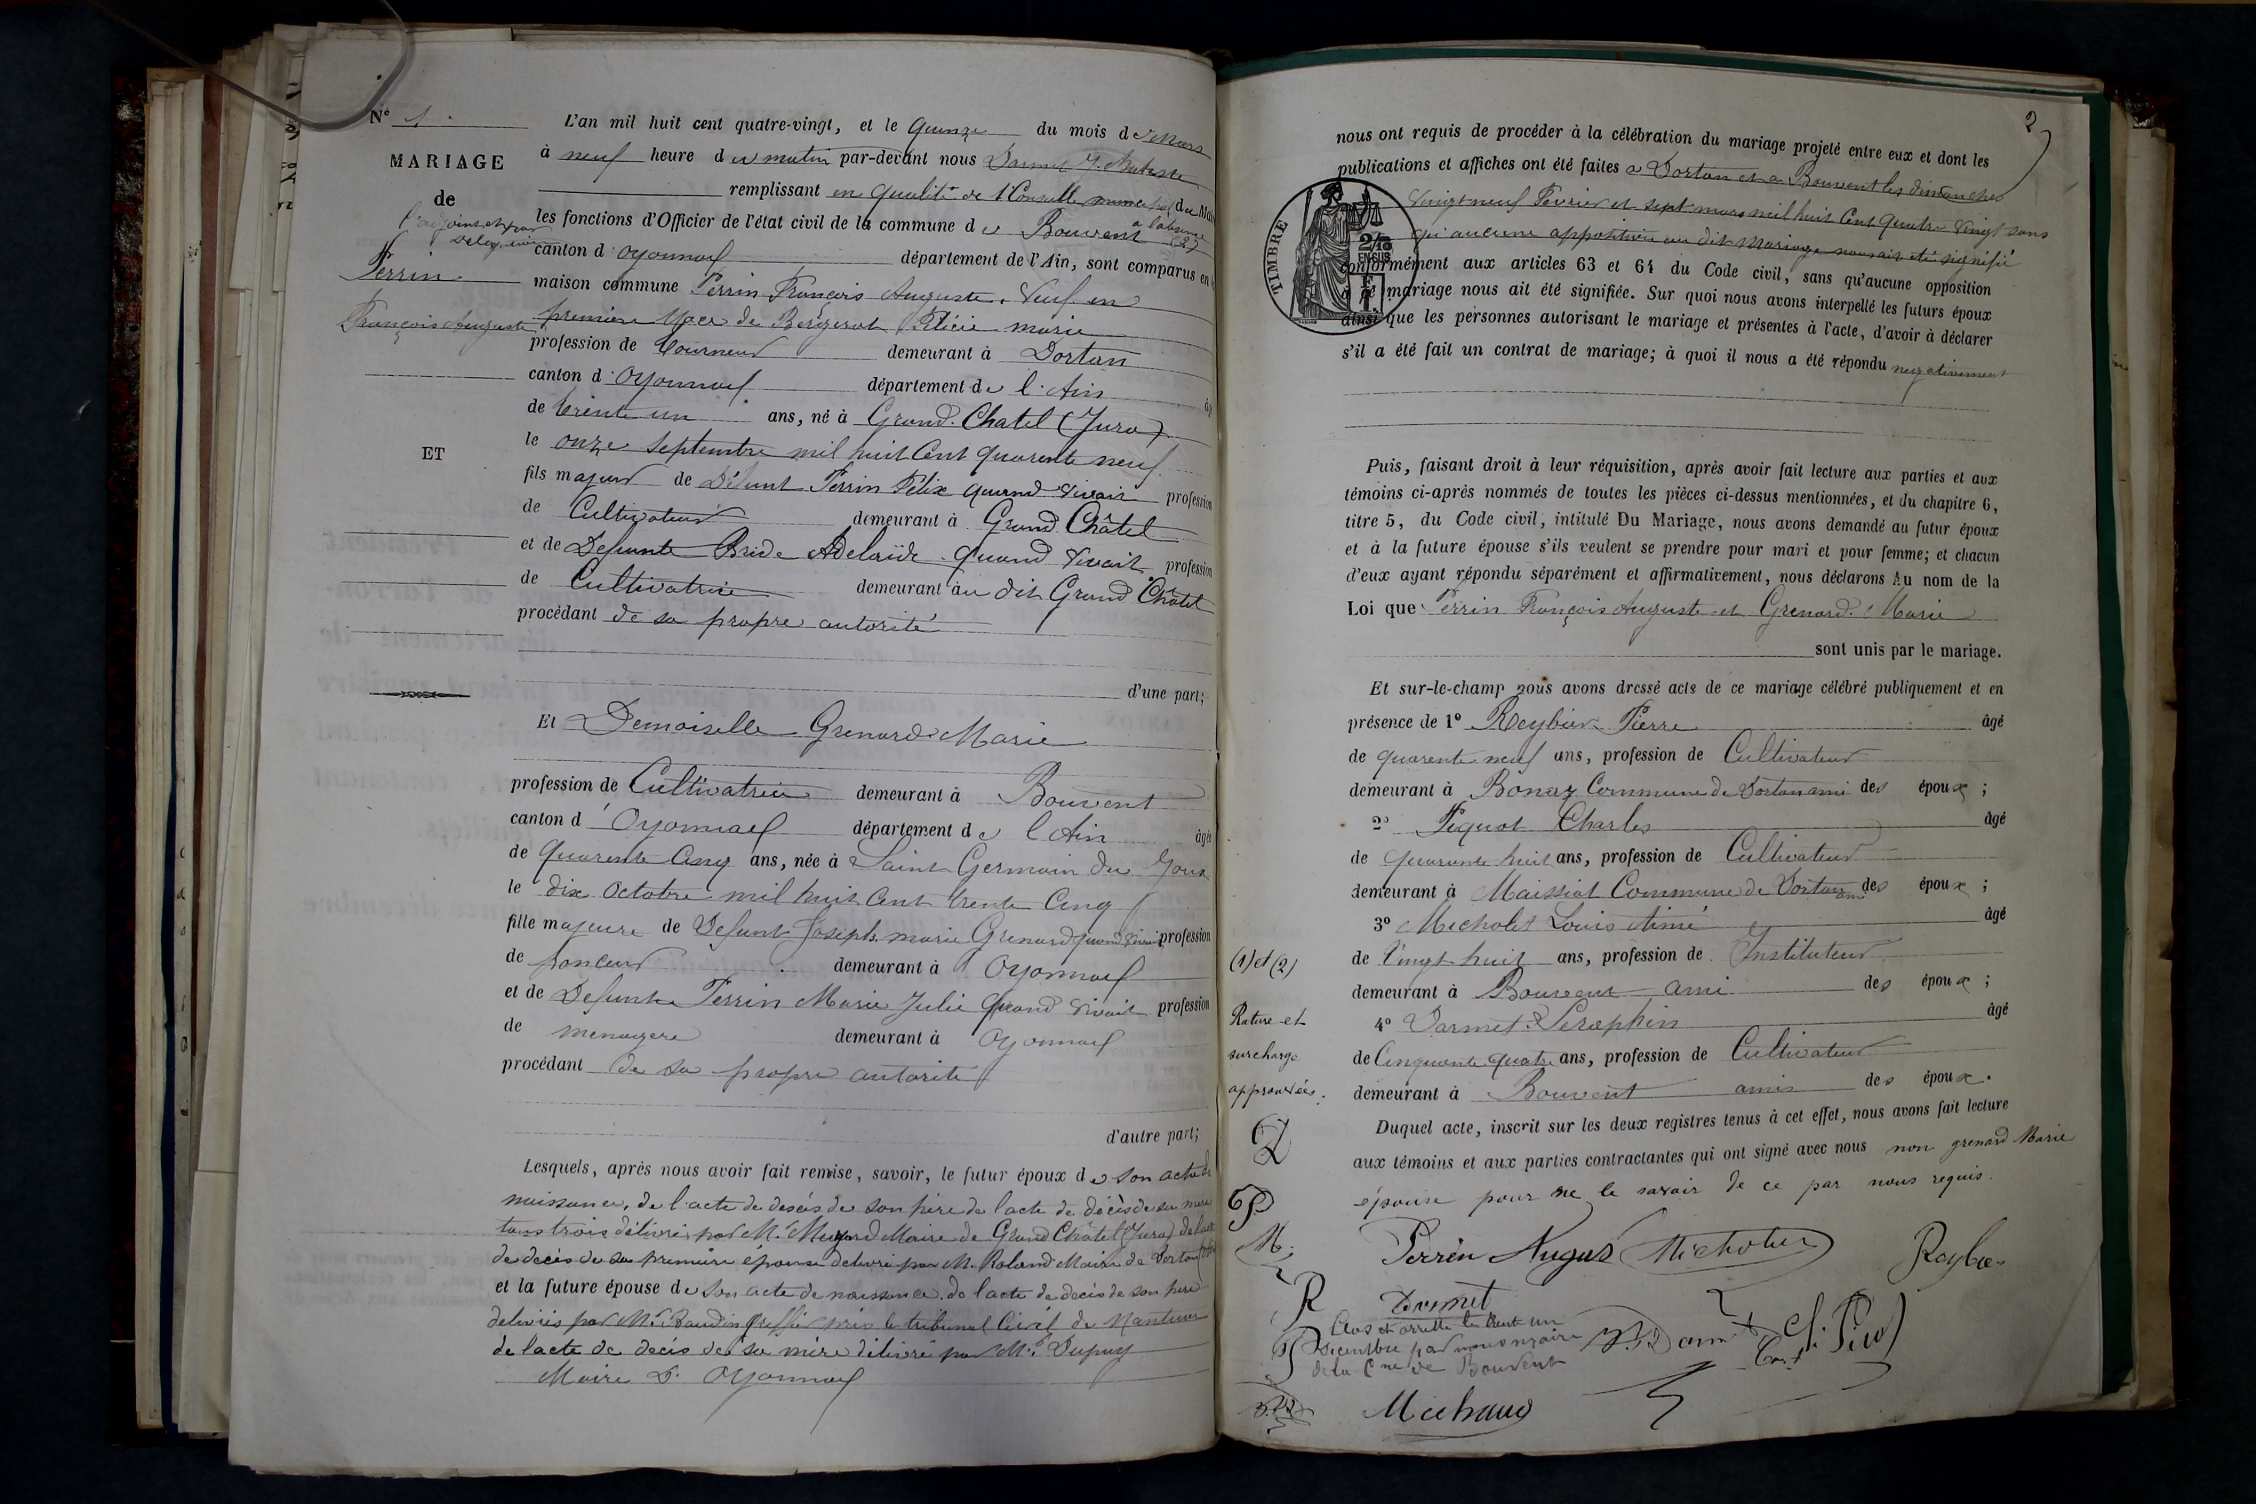 N° 1.
MARIAGE
de
Perrin
François Auguste
ET
L'an mil huit cent quatre-vingt, et le Quinze du mois de Mars
à neuf heure du matin par-devant nous Darmet J. Batiste
remplissant en qualité de 1er Conseille du Maire
les fonctions d'Officier de l'état civil de la commune de Bouvent
canton d'Oyonnax département de l'Ain, sont comparus en
maison commune Perrin François Auguste, Veuf en
première Noce de Félicie marie
profession de tourneur demeurant à Dortan
canton d'Oyonnax département de l'Ain
de trente un ans, né à Grand-Chatel (Jura)
le onze septembre mil huit Cent quarente neuf
fils majeur de Défunt Perrin Félix quand vivait profession
de Cultivateur demeurant à Grand Châtel
et de Defunte Bride Adelaïde quand vivait profession
de Cultivatrice demeurant au dit Grand Châtel
procédant de sa propre autorité
d'une part;
Et Demoiselle Grenard Marie
profession de Cultivatrice demeurant à Bouvent
canton d'Oyonnax département de l'Ain âgée
de quarente Cinq ans, née à Saint Germain de Joux
le dix octobre mil huit Cent trente Cinq
fille majeure de Defunt Joseph marie Grenard quand vivait profession
de ponceur demeurant à Oyonnax
et de Defunte Perrin Marie Julie quand vivait profession
de menagere demeurant à Oyonnax
procédant de sa propre autorité
d'autre part;
Lesquels, après nous avoir fait remise, savoir, le futur époux de son acte de
naissance, de l'acte de decès de son père de l'acte de décès de sa mere
tous trois délivré par Mr Maire de Grand Châtel (Jura) de l'acte
de decès de sa première épouse delivré par M. Roland Maire de Dortan
et la future épouse de son acte de naissance de l'acte de decès de son père
delivrés par Mr Baudin Greffier près le tribunal Civil de Nantua
de lacte de decès de sa mère délivré par Mr Dupuy
Maire D'Oyonnax
2
nous ont requis de procéder à la célébration du mariage projeté entre eux et dont les
publications et affiches ont été faites a Dortan et a Bouvent les dimanches
Vingt neuf Fevrier et sept mars mil huit Cent quatre Vingt sans
qu'aucune opposition au dit Mariage nous ait été signifié
TIMBRE
2/10
EN SUS
conformément aux articles 63 et 64 du Code civil, sans qu'aucune opposition
à ce mariage nous ait été signifiée. Sur quoi nous avons interpellé les futurs époux
ainsi que les personnes autorisant le mariage et présentes à l'acte, d'avoir à déclarer
s'il a été fait un contrat de mariage; à quoi il nous a été répondu negativement
Puis, faisant droit à leur réquisition, après avoir fait lecture aux parties et aux
témoins ci-après nommés de toutes les pièces ci-dessus mentionnées, et du chapitre 6,
titre 5, du Code civil, intitulé Du Mariage, nous avons demandé au futur époux
et à la future épouse s'ils veulent se prendre pour mari et pour femme; et chacun
d'eux ayant répondu séparément et affirmativement, nous déclarons Au nom de la
Loi que Perrin François Auguste et Grenard Marie
sont unis par le mariage.
Et sur-le-champ nous avons dressé acte de ce mariage célébré publiquement et en
présence de 1° Reybier Pierre âgé
de quarente neuf ans, profession de Cultivateur
demeurant à Bonaz Commune de Dortan ami des époux;
2° Piquot Charles âgé
de quarante huit ans, profession de Cultivateur
demeurant à Maissiat Commune de Dortan ami des époux;
3° Micholet Louis Aimé âgé
de Vingt huit ans, profession de Instituteur
demeurant à Bouvent ami des époux;
4° Darmet Seraphin âgé
de Cinquante quatre ans, profession de Cultivateur
demeurant à Bouvent amis des époux.
Duquel acte, inscrit sur les deux registres tenus à cet effet, nous avons fait lecture
aux témoins et aux parties contractantes qui ont signé avec nous non grenard Marie
épouse pour ne le savoir de ce par nous requis.
(1) et (2)
Rature et
surcharge
approuvées.
Perrin Augus Micholet Reybie
Darmet
Clos et arretté le trente un
Decembre par nous maire
de la Cne de Bouvent
Michaud